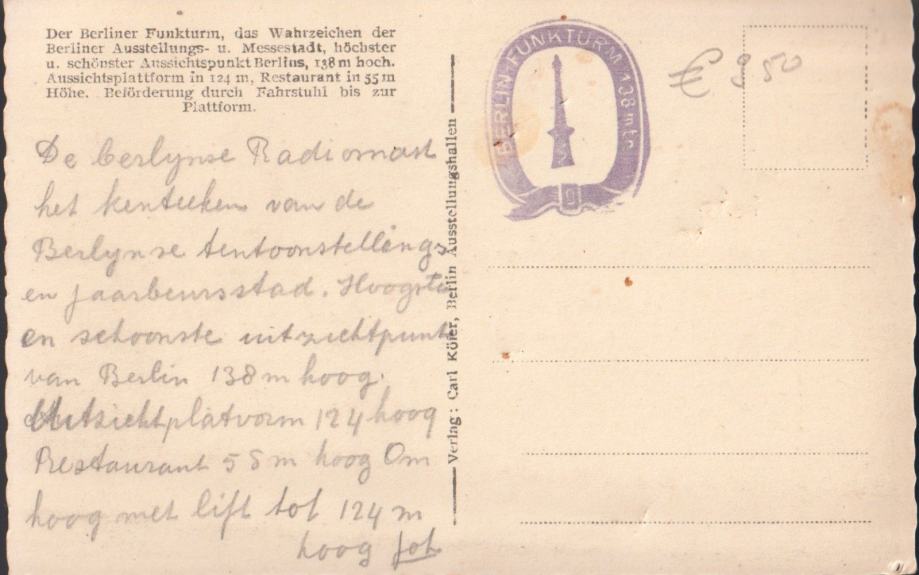 Der Berliner Funkturm, das Wahrzeichen der
Berliner Ausstellungs- u. Messestadt, höchster
u. schönster Aussichtspunkt Berlins, 138 m hoch.
Aussichtsplattform in 124 m, Restaurant in 55 m
Höhe. Beförderung durch Fahrstuhl bis zur
Plattform.
De berlynse Radiomast
het kenteeken van de
Berlynse tentoonstellings
en jaarbeursstad. Hoogste
en schoonste uitzichtpunt
van Berlin 138 m hoog.
Uitzichtplatvorm 124 hoog
Restaurant 55 m hoog Om
hoog met lift tot 124 m
hoog
Verlag: Carl Köfer, Berlin Ausstellungshallen
BERLIN-FUNKTURM 138 mtr
€ 950